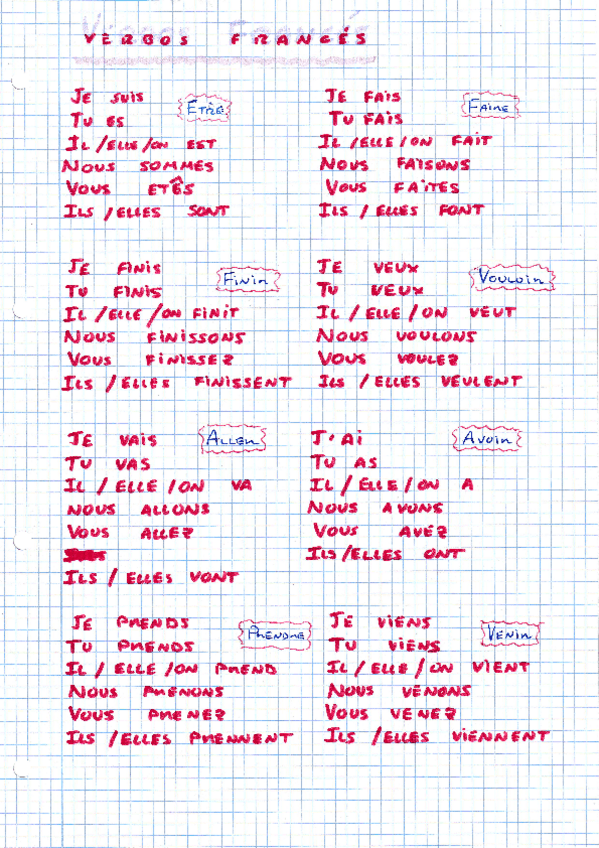 VERBOS FRANCÉS
JE SUIS
TU ES
IL / ELLE / ON EST
NOUS SOMMES
VOUS ETÊS
ILS / ELLES SONT
ETRE
JE FAIS
TU FAIS
IL / ELLE / ON FAIT
NOUS FAISONS
VOUS FAITES
ILS / ELLES FONT
FAIRE
JE FINIS
TU FINIS
IL / ELLE / ON FINIT
NOUS FINISSONS
VOUS FINISSEZ
ILS / ELLES FINISSENT
FINIR
JE VEUX
TU VEUX
IL / ELLE / ON VEUT
NOUS VOULONS
VOUS VOULEZ
ILS / ELLES VEULENT
VOULOIR
JE VAIS
TU VAS
IL / ELLE / ON VA
NOUS ALLONS
VOUS ALLEZ
ILS / ELLES VONT
ALLER
J'AI
TU AS
IL / ELLE / ON A
NOUS AVONS
VOUS AVEZ
ILS / ELLES ONT
AVOIR
JE PRENDS
TU PRENDS
IL / ELLE / ON PREND
NOUS PRENONS
VOUS PRENEZ
ILS / ELLES PRENNENT
PRENDRE
JE VIENS
TU VIENS
IL / ELLE / ON VIENT
NOUS VENONS
VOUS VENEZ
ILS / ELLES VIENNENT
VENIR